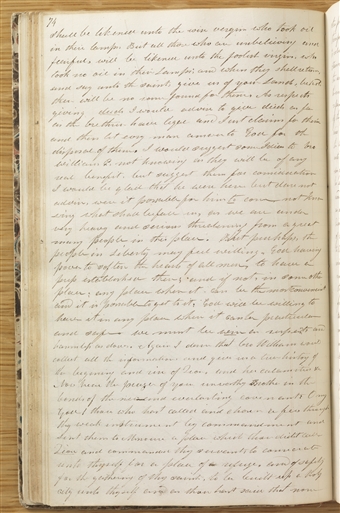 74
shall be likened unto the wise virgin who took oil
in their lamps. But all those who are unbelieving and
fearful, will be likened unto the foolish virgins, who
took no oil in their Lamps; and when they shall return,
and say unto the saints, give us of your Lands, behold
there will be no room found for them. As respects
giving deeds I would advise to give deeds as far
as the brethren have legal and Just claims for them
and then let every man answer to God for the
disposal of them. I would suggest some Ideas to bro
William not knowing as they will be of any
real benefit, but suggest them for consideration
I would be glad that he were here but dare not
advise, were it possible for him to come not know
ing what shall befall us, as we are under
very heavy and serious threatnings from a great
many people in this place. But perhaps, the
people in Liberty may feel willing, God having
power to soften the hearts of all men, to have a
press established there; and if not, in some other
place; any place where it can be the most convenient
and it is possible to get to it; God will be willing to
have it in any place where it can be
and we must be wise as serpents and
harmless as doves. Again I desire that bro William would
collect all the information and give us a history of
the beginning and rise of Zion, and her calamities &c
Now hear the prayer of your unworthy Brother in the
bonds of the new and everlasting covenant; O my
God! thou who hast called and chosen a few through
thy weak instrument by commandment and
sent them to Missouri a place which thou didst call
Zion and commanded thy servants to consecrate
unto thyself for a place of refuge and of safety
for the gathering of thy saints, to be built up a Holy
city unto thyself and as thou hast said that none